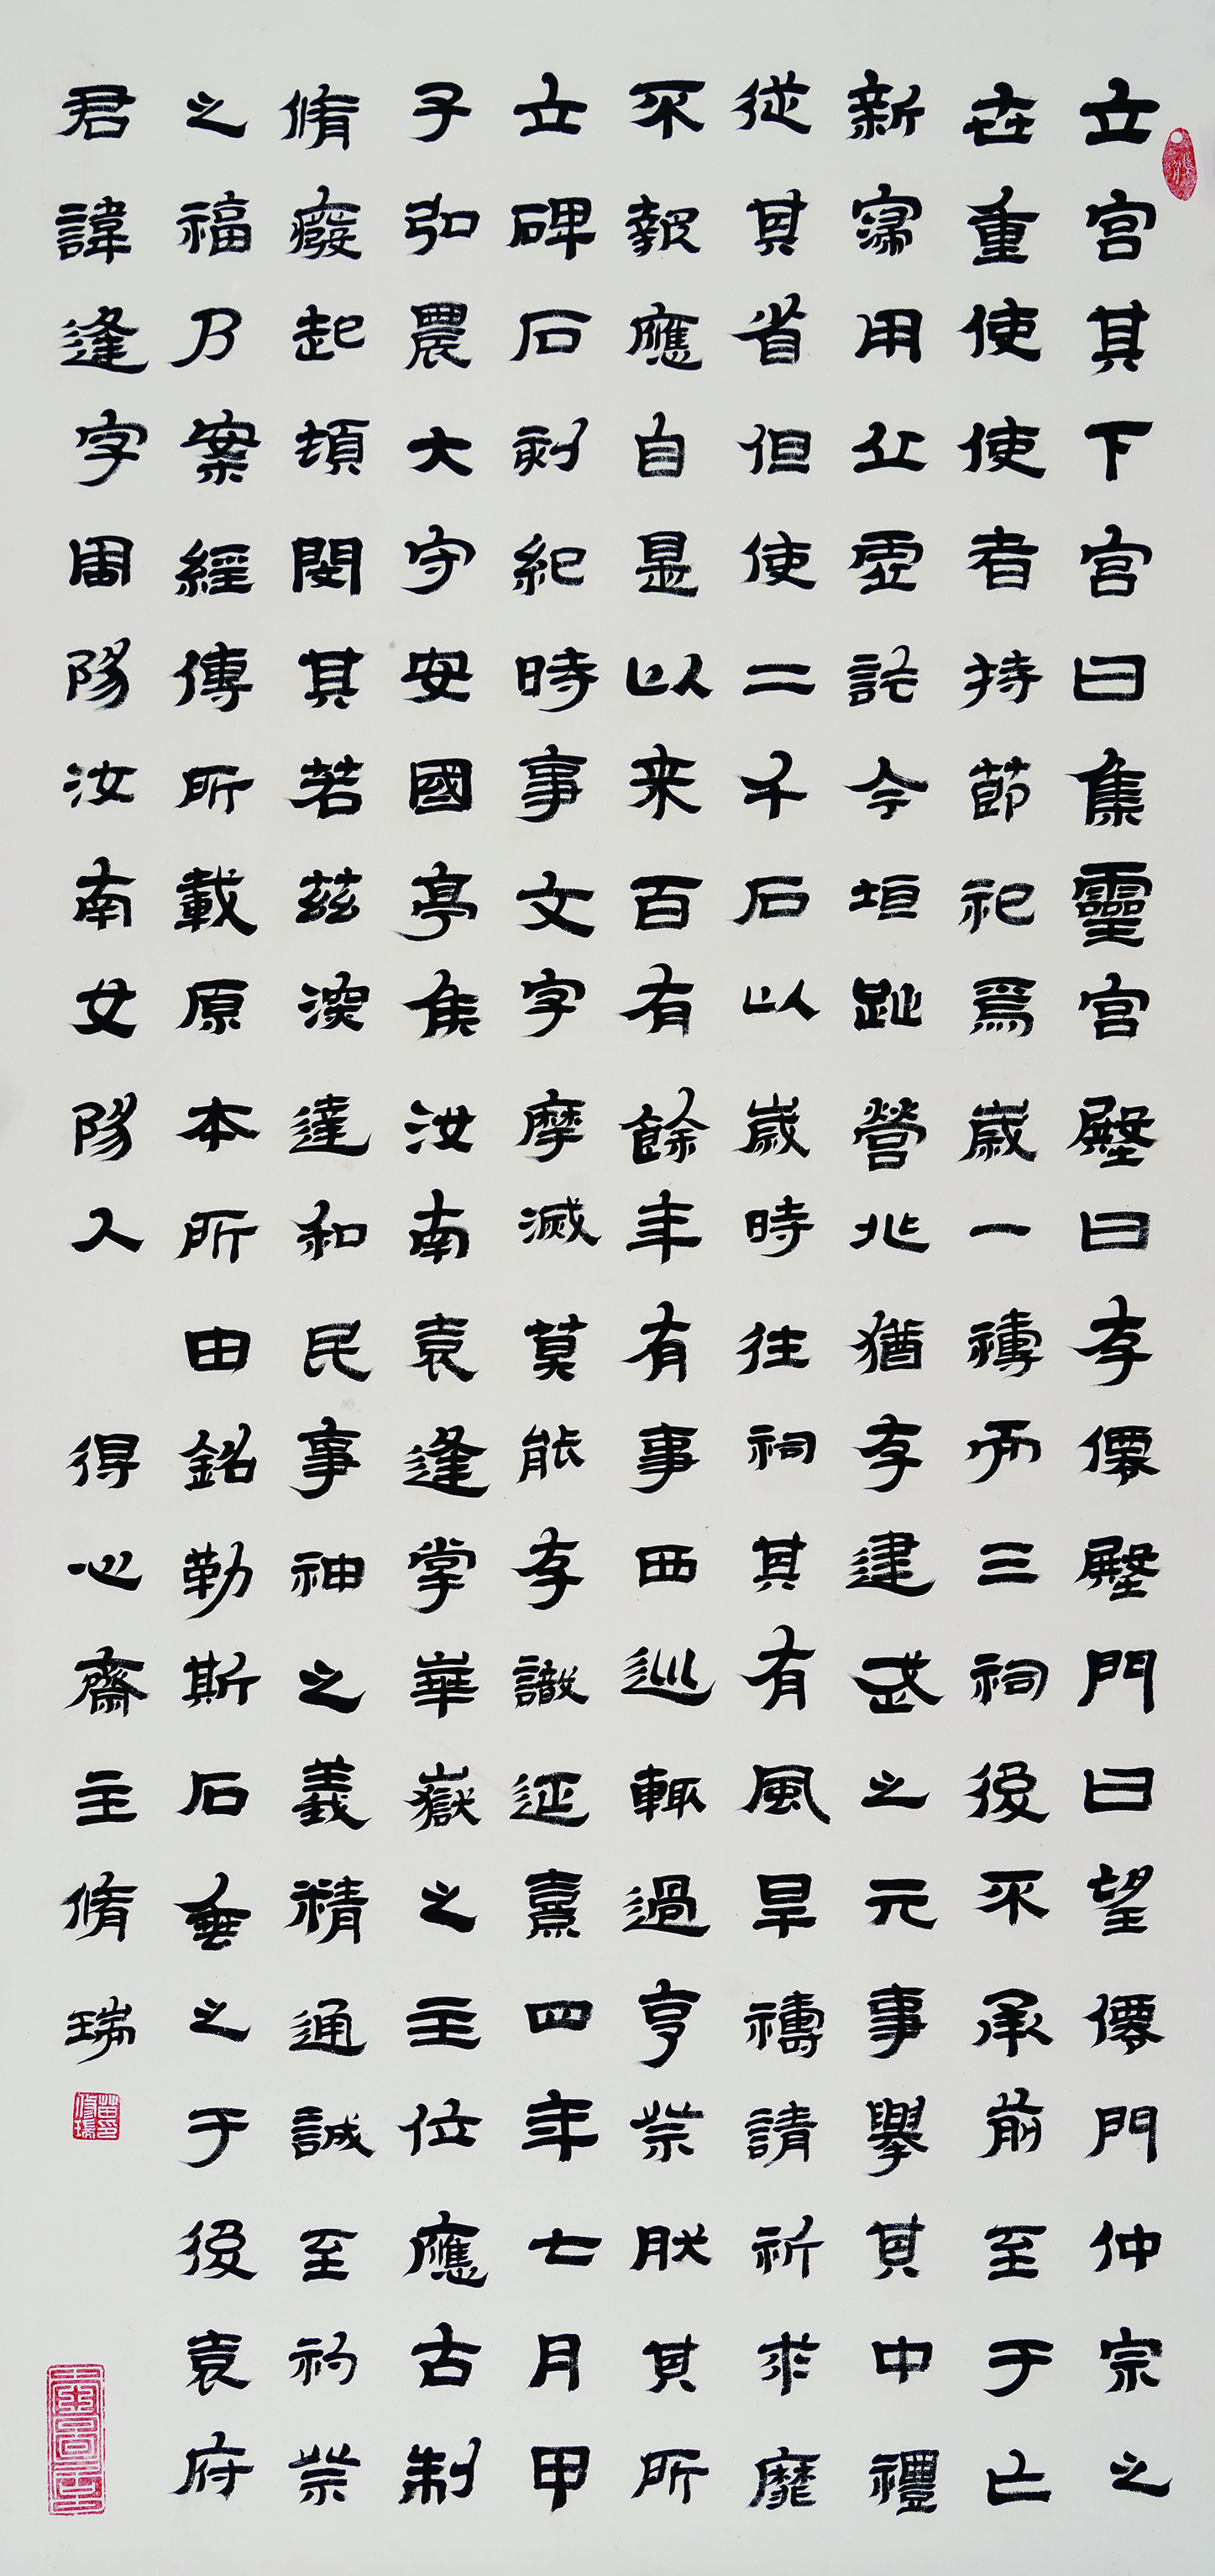 立宮其下宮曰集靈宮壂曰存僊壂門曰望僊門仲宗之
世重使使者持節祀焉歲一禱而三祠後不承前至于亡
新寖用丘虛訖今垣趾營兆猶存建武之元事舉其中禮
從其省但使二千石以歲時往祠其有風旱禱請祈求靡
不報應自是以来百有餘年有事西巡輒過亨祭然其所
立碑石刻紀時事文字摩滅莫能存識延熹四年七月甲
子弘農大守安國亭侯汝南袁逢掌華嶽之主位應古制
脩癈起頓閔其若茲深達和民事神之義精通誠至礿祭
之福乃案經傳所載原本所由銘勒斯石垂之于後袁府
君諱逢字周陽汝南女陽人 得心齋主脩瑞
苗印修瑞